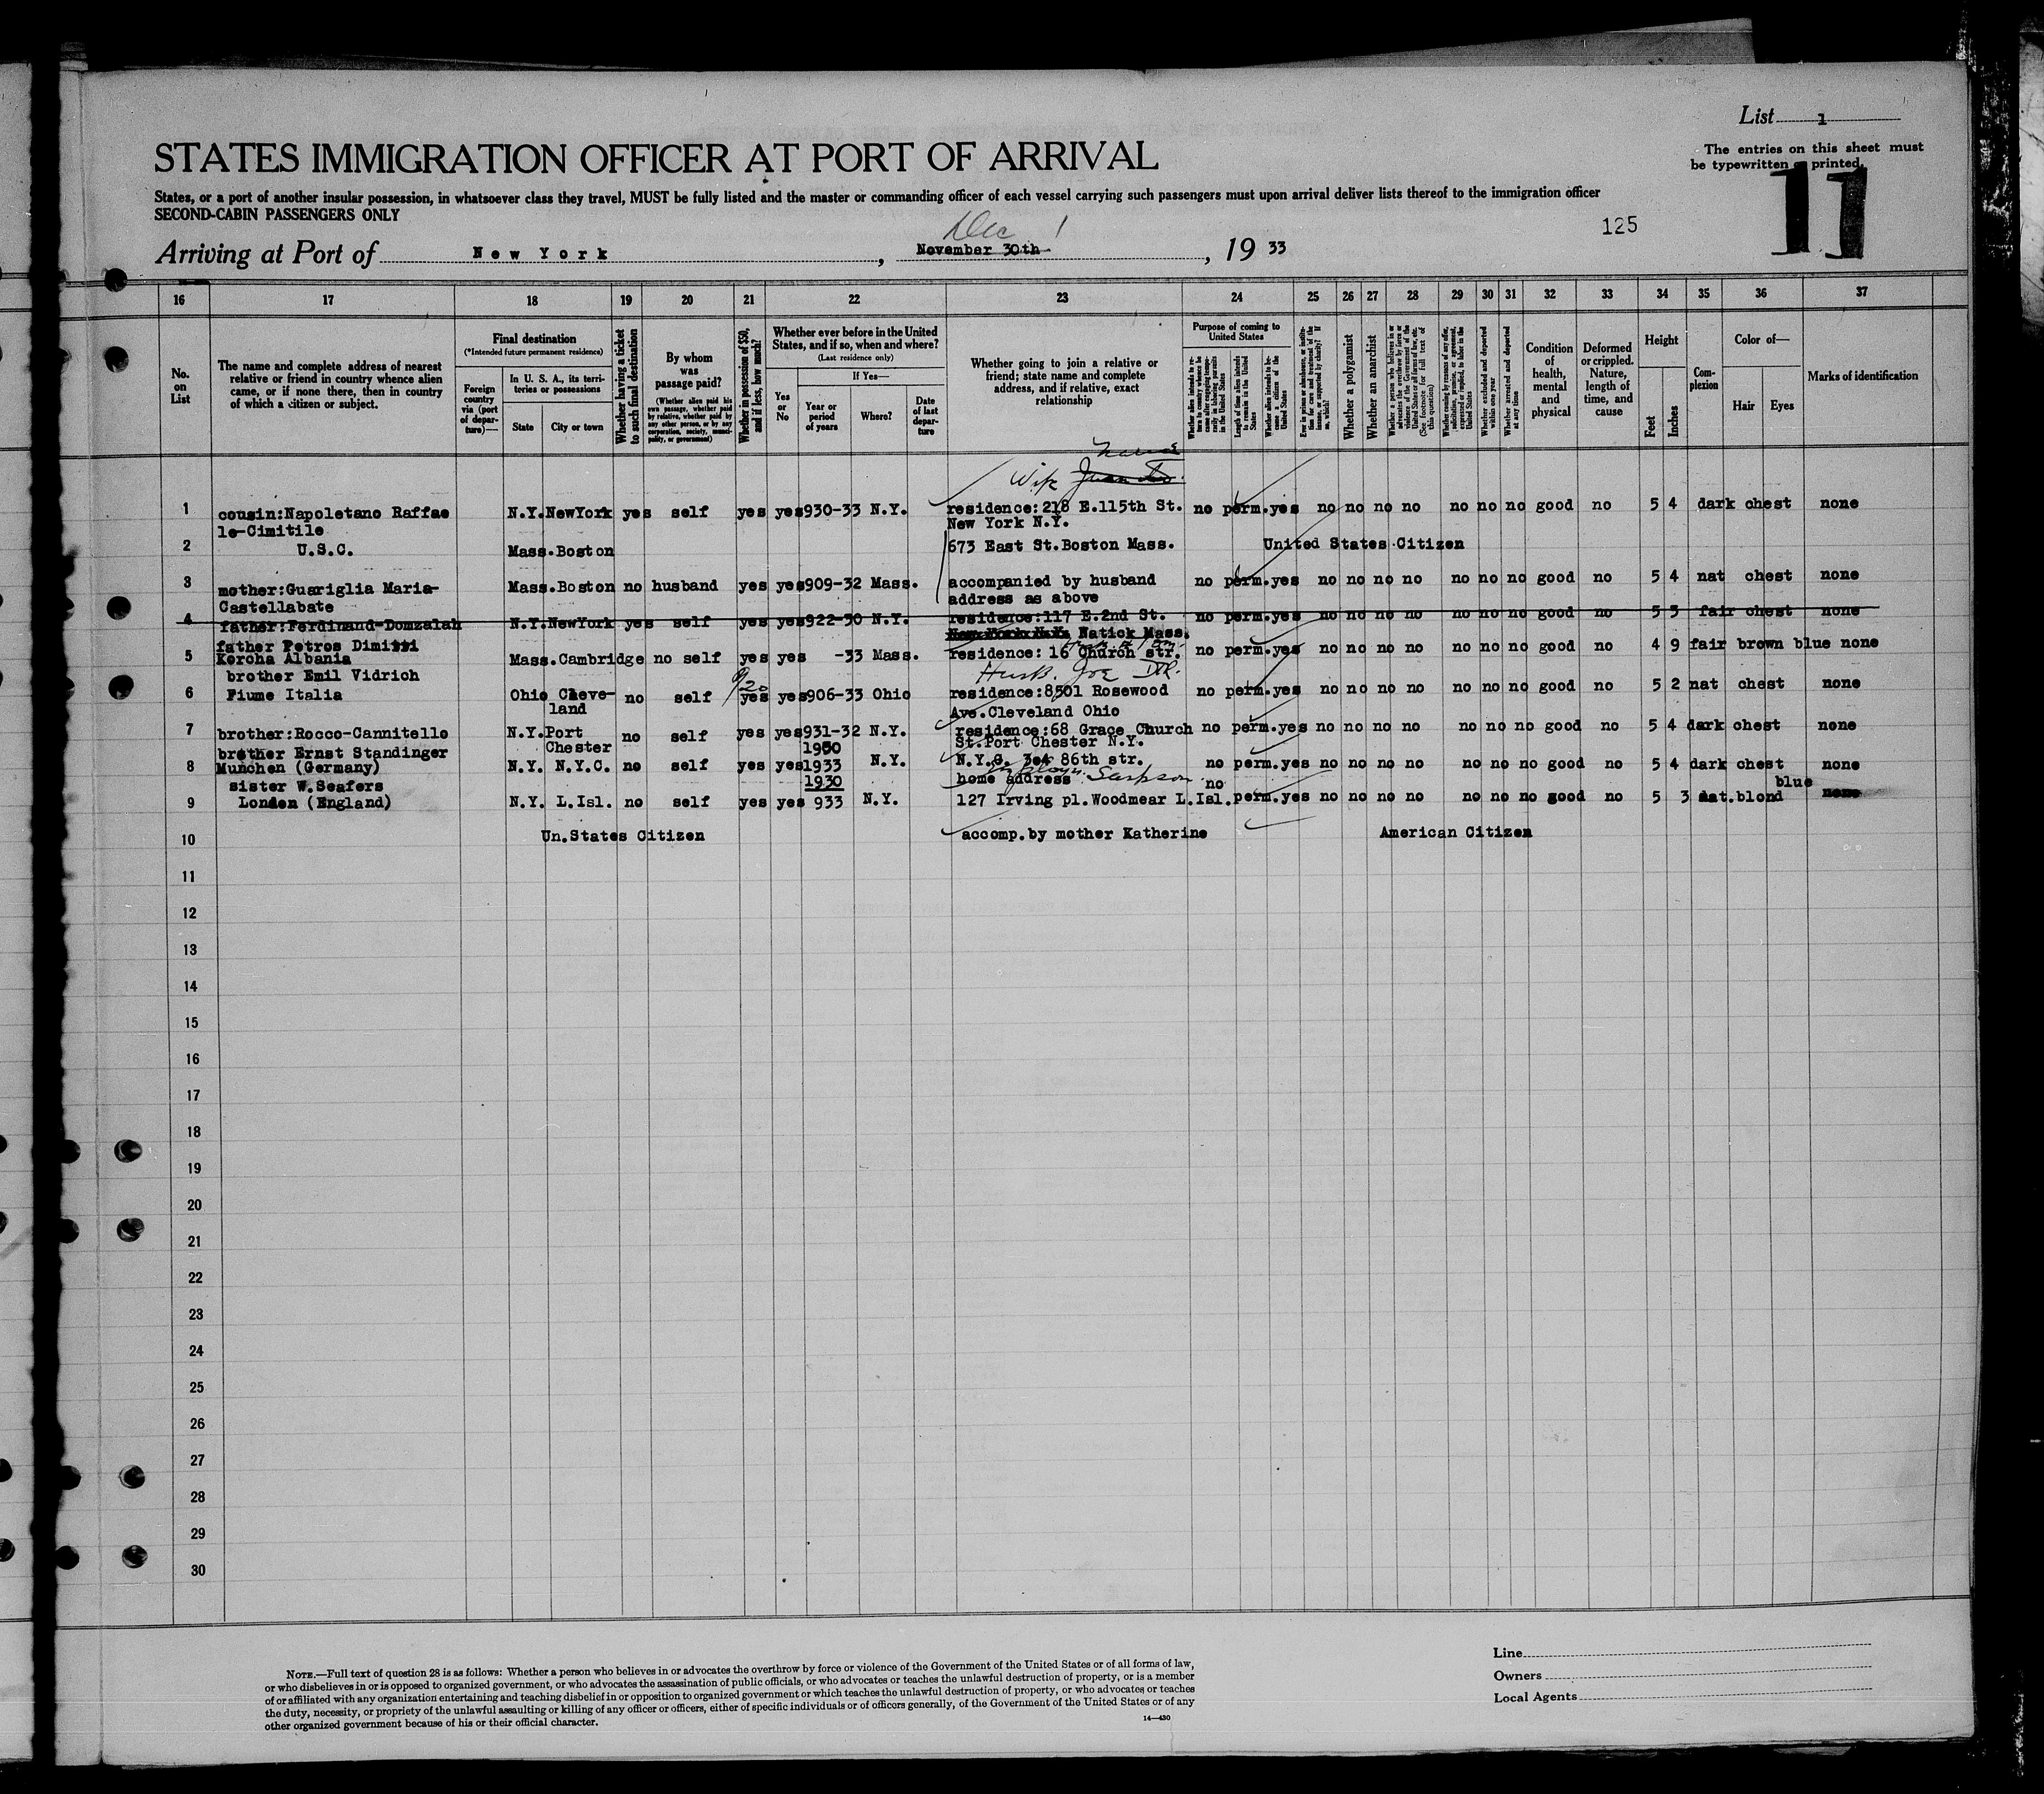 List 1
STATES IMMIGRATION OFFICER AT PORT OF ARRIVAL
The entries on this sheet must
be typewritten or printed.
States, or a port of another insular possession, in whatsoever class they travel, MUST be fully listed and the master or commanding officer of each vessel carrying such passengers must upon arrival deliver lists thereof to the immigration officer
SECOND-CABIN PASSENGERS ONLY
11
125
Dec 1
Arriving at Port of New York, November 30th, 19 33
16 17 18 19 20 21 22 23 24 25 26 27 28 29 30 31 32 33 34 35 36 37
No. on List
The name and complete address of nearest relative or friend in country whence alien came, or if none there, then in country of which a citizen or subject.
Final destination
(*Intended future permanent residence)
Foreign country via (port of departure)—
In U. S. A., its territories or possessions
State
City or town
Whether having a ticket to such final destination
By whom was passage paid?
(Whether alien paid his own passage, whether paid by relative, whether paid by any other person, or by any corporation, society, municipality, or government)
Whether in possession of $50, and if less, how much?
Whether ever before in the United States, and if so, when and where?
(Last residence only)
Yes or No
If Yes—
Year or period of years
Where?
Date of last departure
Whether going to join a relative or friend; state name and complete address, and if relative, exact relationship
Purpose of coming to United States
Whether alien intends to return to country whence he came after engaging temporarily in laboring pursuits in the United States
Length of time alien intends to remain in the United States
Whether alien intends to become a citizen of the United States
Ever in prison or almshouse, or institution for care and treatment of the insane, or supported by charity? If so, which?
Whether a polygamist
Whether an anarchist
Whether a person who believes in or advocates the overthrow by force or violence of the Government of the United States or all forms of law, etc. (See footnote for full text of this question)
Whether coming by reason of any offer, solicitation, promise, or agreement, expressed or implied, to labor in the United States
Whether excluded and deported within one year
Whether arrested and deported at any time
Condition of health, mental and physical
Deformed or crippled. Nature, length of time, and cause
Height
Feet
Inches
Complexion
Color of—
Hair
Eyes
Marks of identification
Wife
1 cousin:Napoletano Raffae N.Y. NewYork yes self yes yes 930-33 N.Y. residence:218 E.115th St. no perm. yes no no no no no no no good no 5 4 dark chest none
le-Cimitile New York N.Y.
2 U.S.C. Mass. Boston 673 East St. Boston Mass. United States Citizen
3 mother:Guariglia Maria- Mass. Boston no husband yes yes 909-32 Mass. accompanied by husband no perm. yes no no no no no no no good no 5 4 nat chest none
Castellabate address as above
4 father:Ferdinand-Domzalah N.Y. NewYork yes self yes yes 922-30 N.Y. residence:117 E.2nd St. no perm. yes no no no no no no no good no 5 3 fair chest none
New York N.Y. Natick Mass.
father Petros Dimitri
5 Korcha Albania Mass. Cambridge no self yes yes -33 Mass. residence: 16 Church str. no perm. yes no no no no no no no good no 4 9 fair brown blue none
Husb. Joe
brother Emil Vidrich
6 Fiume Italia Ohio Cleve- no self yes yes 906-33 Ohio residence:8501 Rosewood no perm. yes no no no no no no no good no 5 2 nat chest none
land Ave. Cleveland Ohio
7 brother:Rocco-Cannitello N.Y. Port no self yes yes 931-32 N.Y. residence:68 Grace Church no perm. yes no no no no no no no good no 5 4 dark chest none
Chester St. Port Chester N.Y.
brother Ernst Standinger 1930
8 Munchen (Germany) N.Y. N.Y.C. no self yes yes 1933 N.Y. N.Y.C. 304 86th str. no perm. yes no no no no no no no good no 5 4 dark chest none
sister W.Seafers 1930 home address no blue
9 London (England) N.Y. L.Isl. no self yes yes 933 N.Y. 127 Irving pl. Woodmear L.Isl. perm. yes no no no no no no no good no 5 3 nat. blond none
10 Un. States Citizen accomp. by mother Katherine American Citizen
11
12
13
14
15
16
17
18
19
20
21
22
23
24
25
26
27
28
29
30
NOTE.—Full text of question 28 is as follows: Whether a person who believes in or advocates the overthrow by force or violence of the Government of the United States or of all forms of law,
or who disbelieves in or is opposed to organized government, or who advocates the assassination of public officials, or who advocates or teaches the unlawful destruction of property, or is a member
of or affiliated with any organization entertaining and teaching disbelief in or opposition to organized government or which teaches the unlawful destruction of property, or who advocates or teaches
the duty, necessity, or propriety of the unlawful assaulting or killing of any officer or officers, either of specific individuals or of officers generally, of the Government of the United States or of any
other organized government because of his or their official character.
14—430
Line
Owners
Local Agents